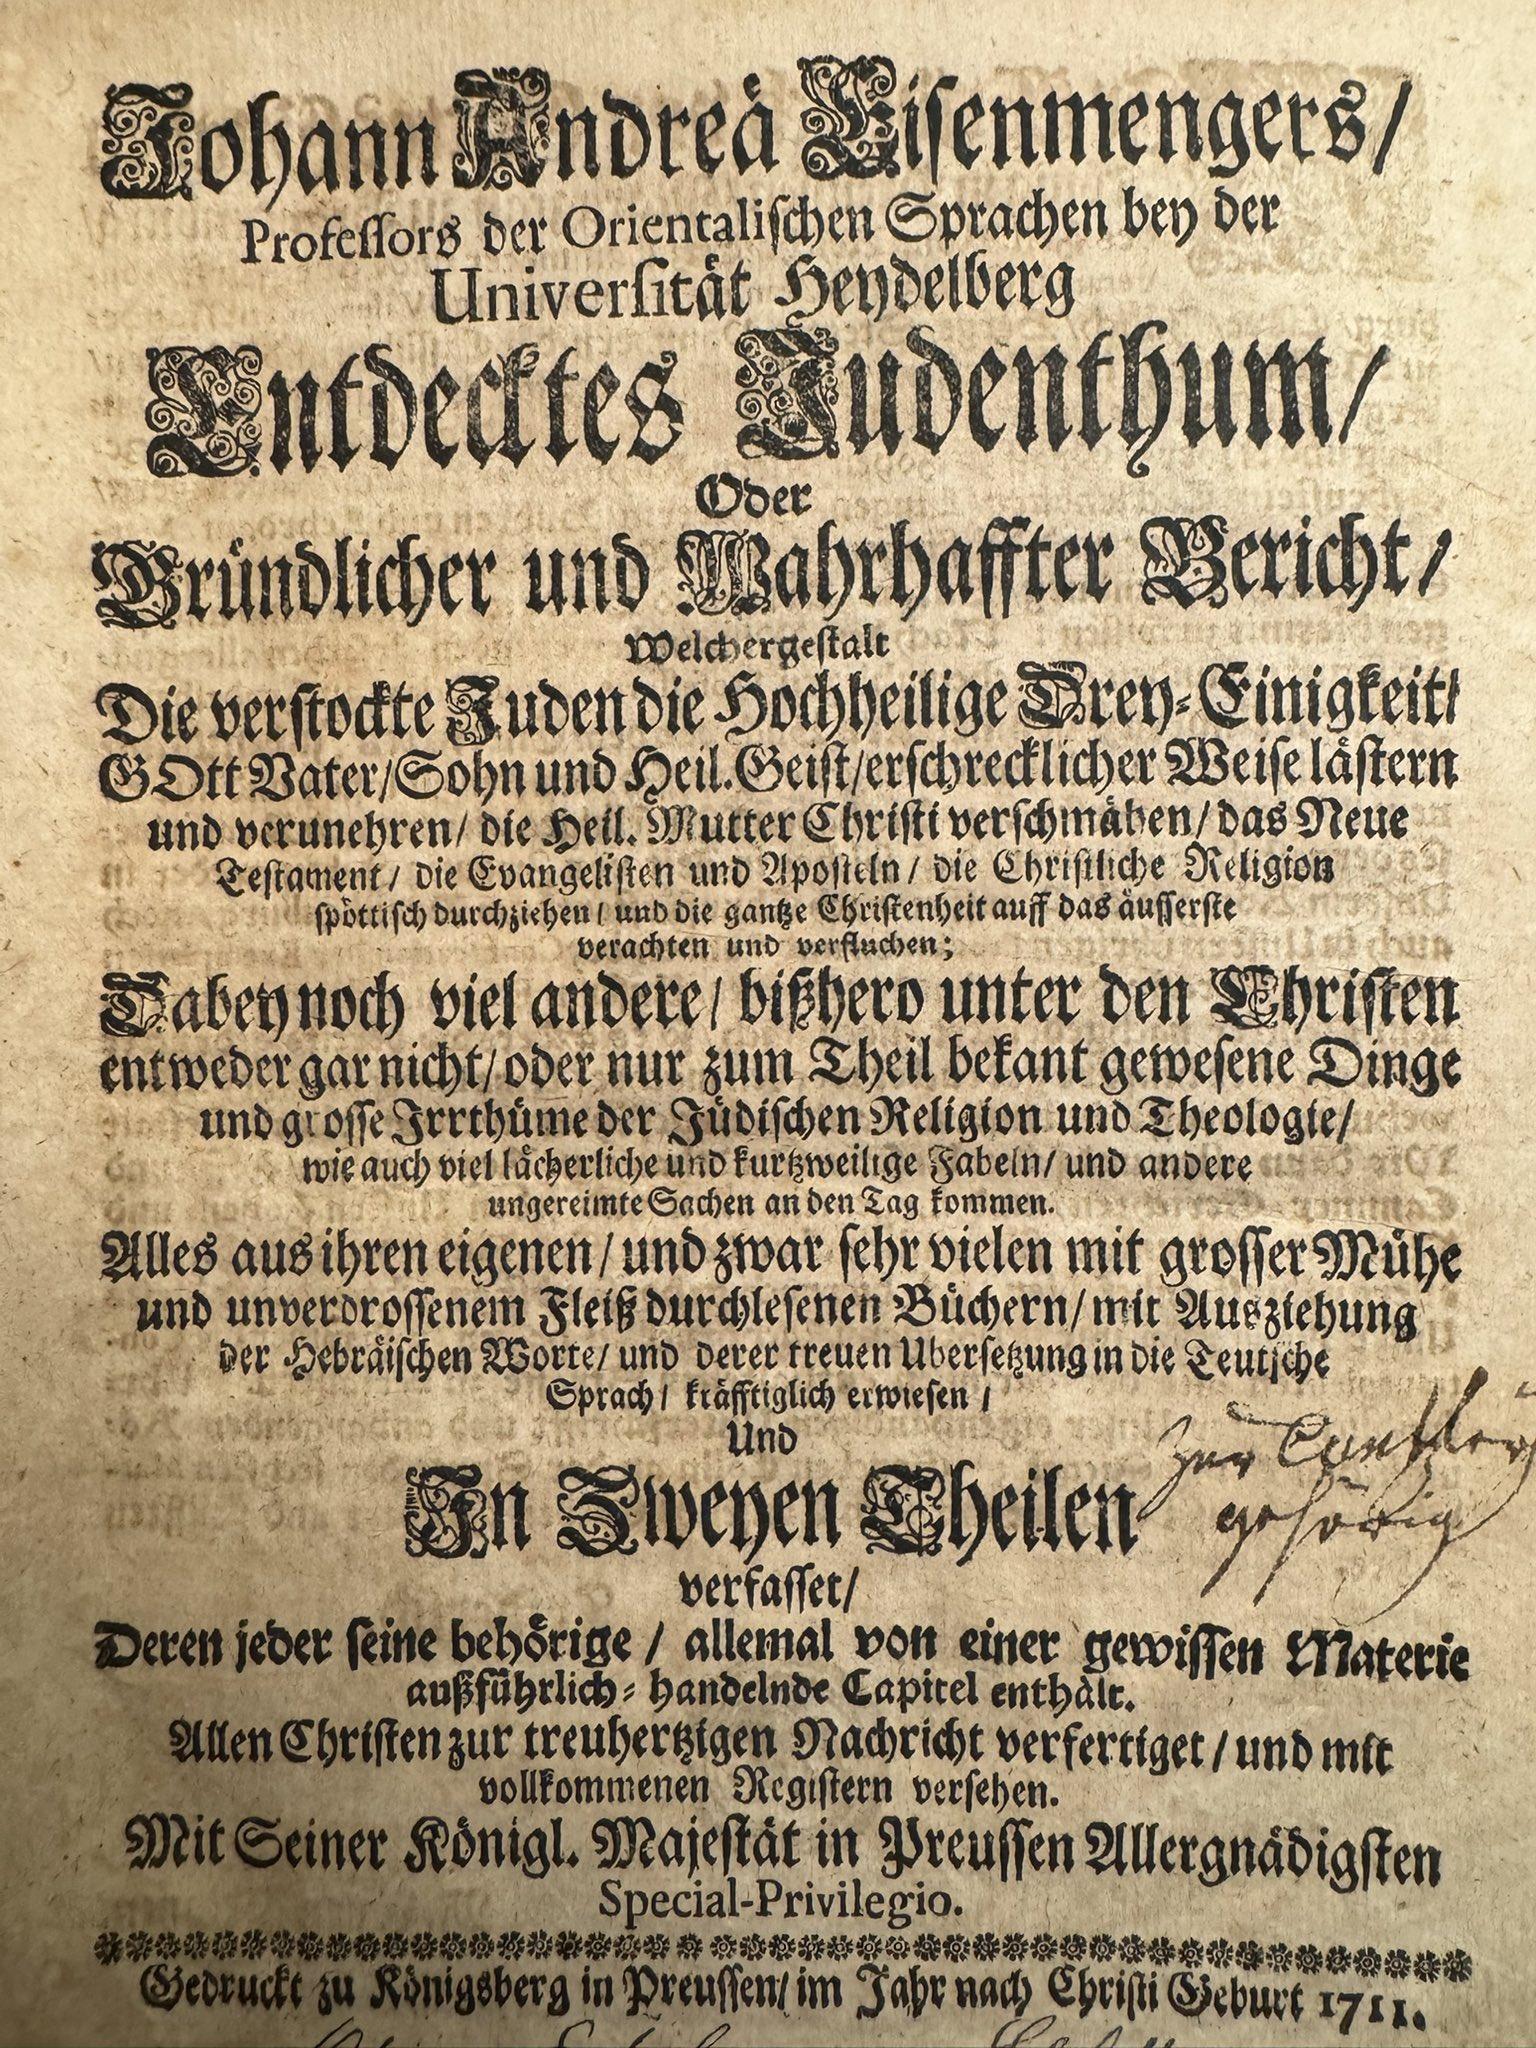 Johann Andreä Eisenmengers/
Professors der Orientalischen Sprachen bey der
Universität Heydelberg
Entdecktes Judenthum/
Oder
Gründlicher und Wahrhaffter Bericht/
Welchergestalt
Die verstockte Juden die Hochheilige Drey-Einigkeit/
GOtt Vater/Sohn und Heil. Geist/erschrecklicher Weise lästern
und verunehren/ die Heil. Mutter Christi verschmähen/ das Neue
Testament/ die Evangelisten und Aposteln/ die Christliche Religion
spöttisch durchziehen/ und die gantze Christenheit auff das äusserste
verachten und verfluchen;
Dabey noch viel andere/ bißhero unter den Christen
entweder gar nicht/ oder nur zum Theil bekant gewesene Dinge
und grosse Irrthüme der Jüdischen Religion und Theologie/
wie auch viel lächerliche und kurtzweilige Fabeln/ und andere
ungereimte Sachen an den Tag kommen.
Alles aus ihren eigenen/ und zwar sehr vielen mit grosser Mühe
und unverdrossenem Fleiß durchlesenen Büchern/ mit Ausziehung
der Hebräischen Worte/ und derer treuen Ubersetzung in die Teutsche
Sprach/ kräfftiglich erwiesen/
Und
In Zweyen Theilen
zur Cantzley
gehörig
verfasset/
Deren jeder seine behörige/ allemal von einer gewissen Materie
außführlich-handelnde Capitel enthält.
Allen Christen zur treuhertzigen Nachricht verfertiget/ und mit
vollkommenen Registern versehen.
Mit Seiner Königl. Majestät in Preussen Allergnädigsten
Special-Privilegio.
Gedruckt zu Königsberg in Preussen/ im Jahr nach Christi Geburt 1711.